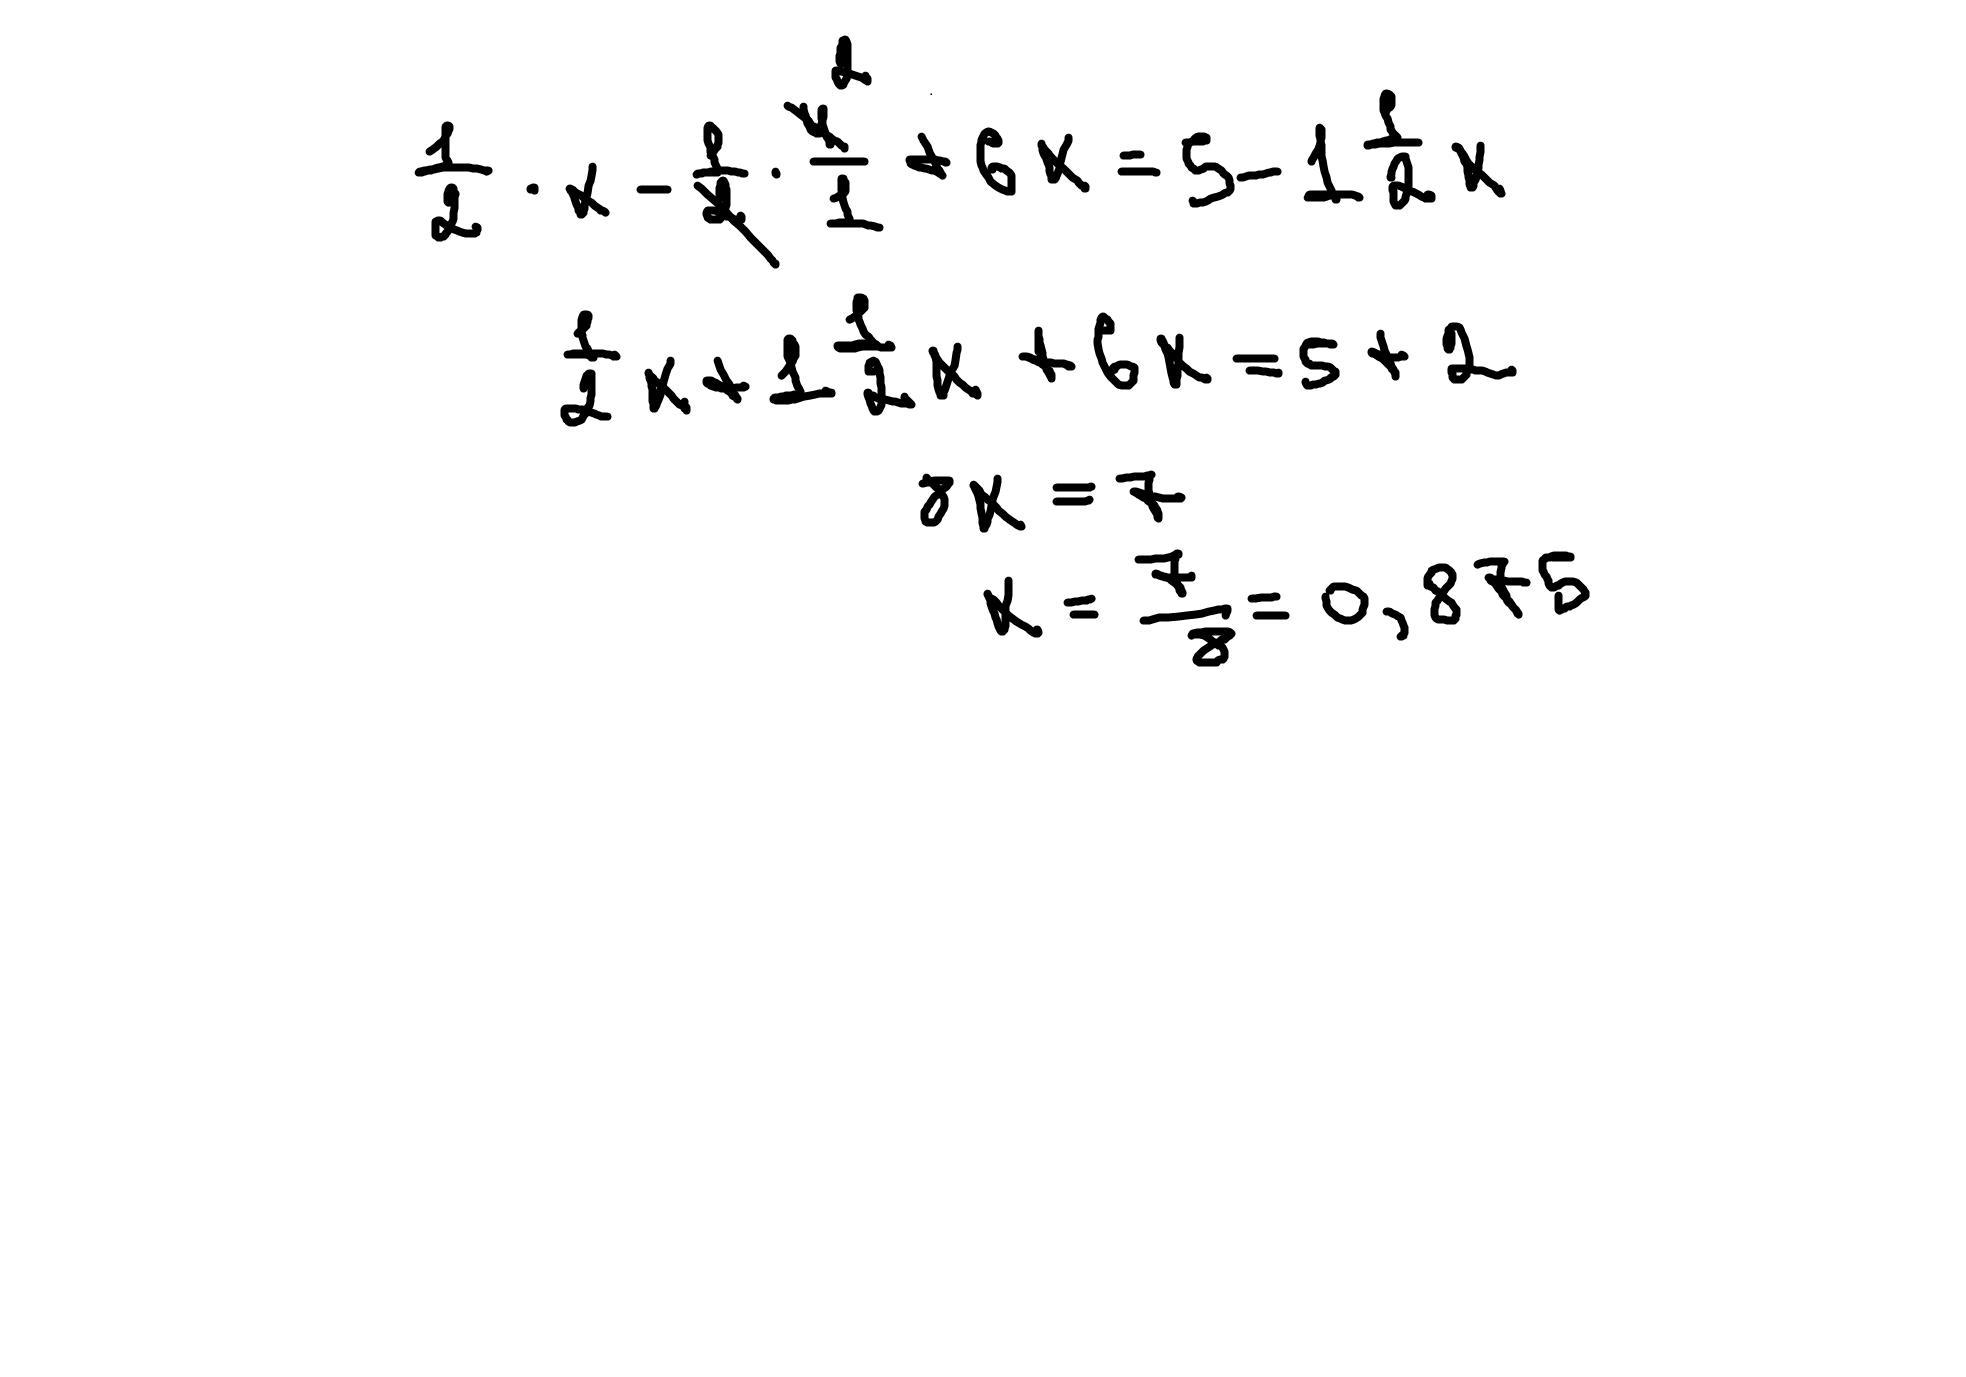 1/2 · x - 1/2 · 4/1 2 + 6x = 5 - 1 1/2 x
1/2 x + 1 1/2 x + 6x = 5 + 2
8x = 7
x = 7/8 = 0,875